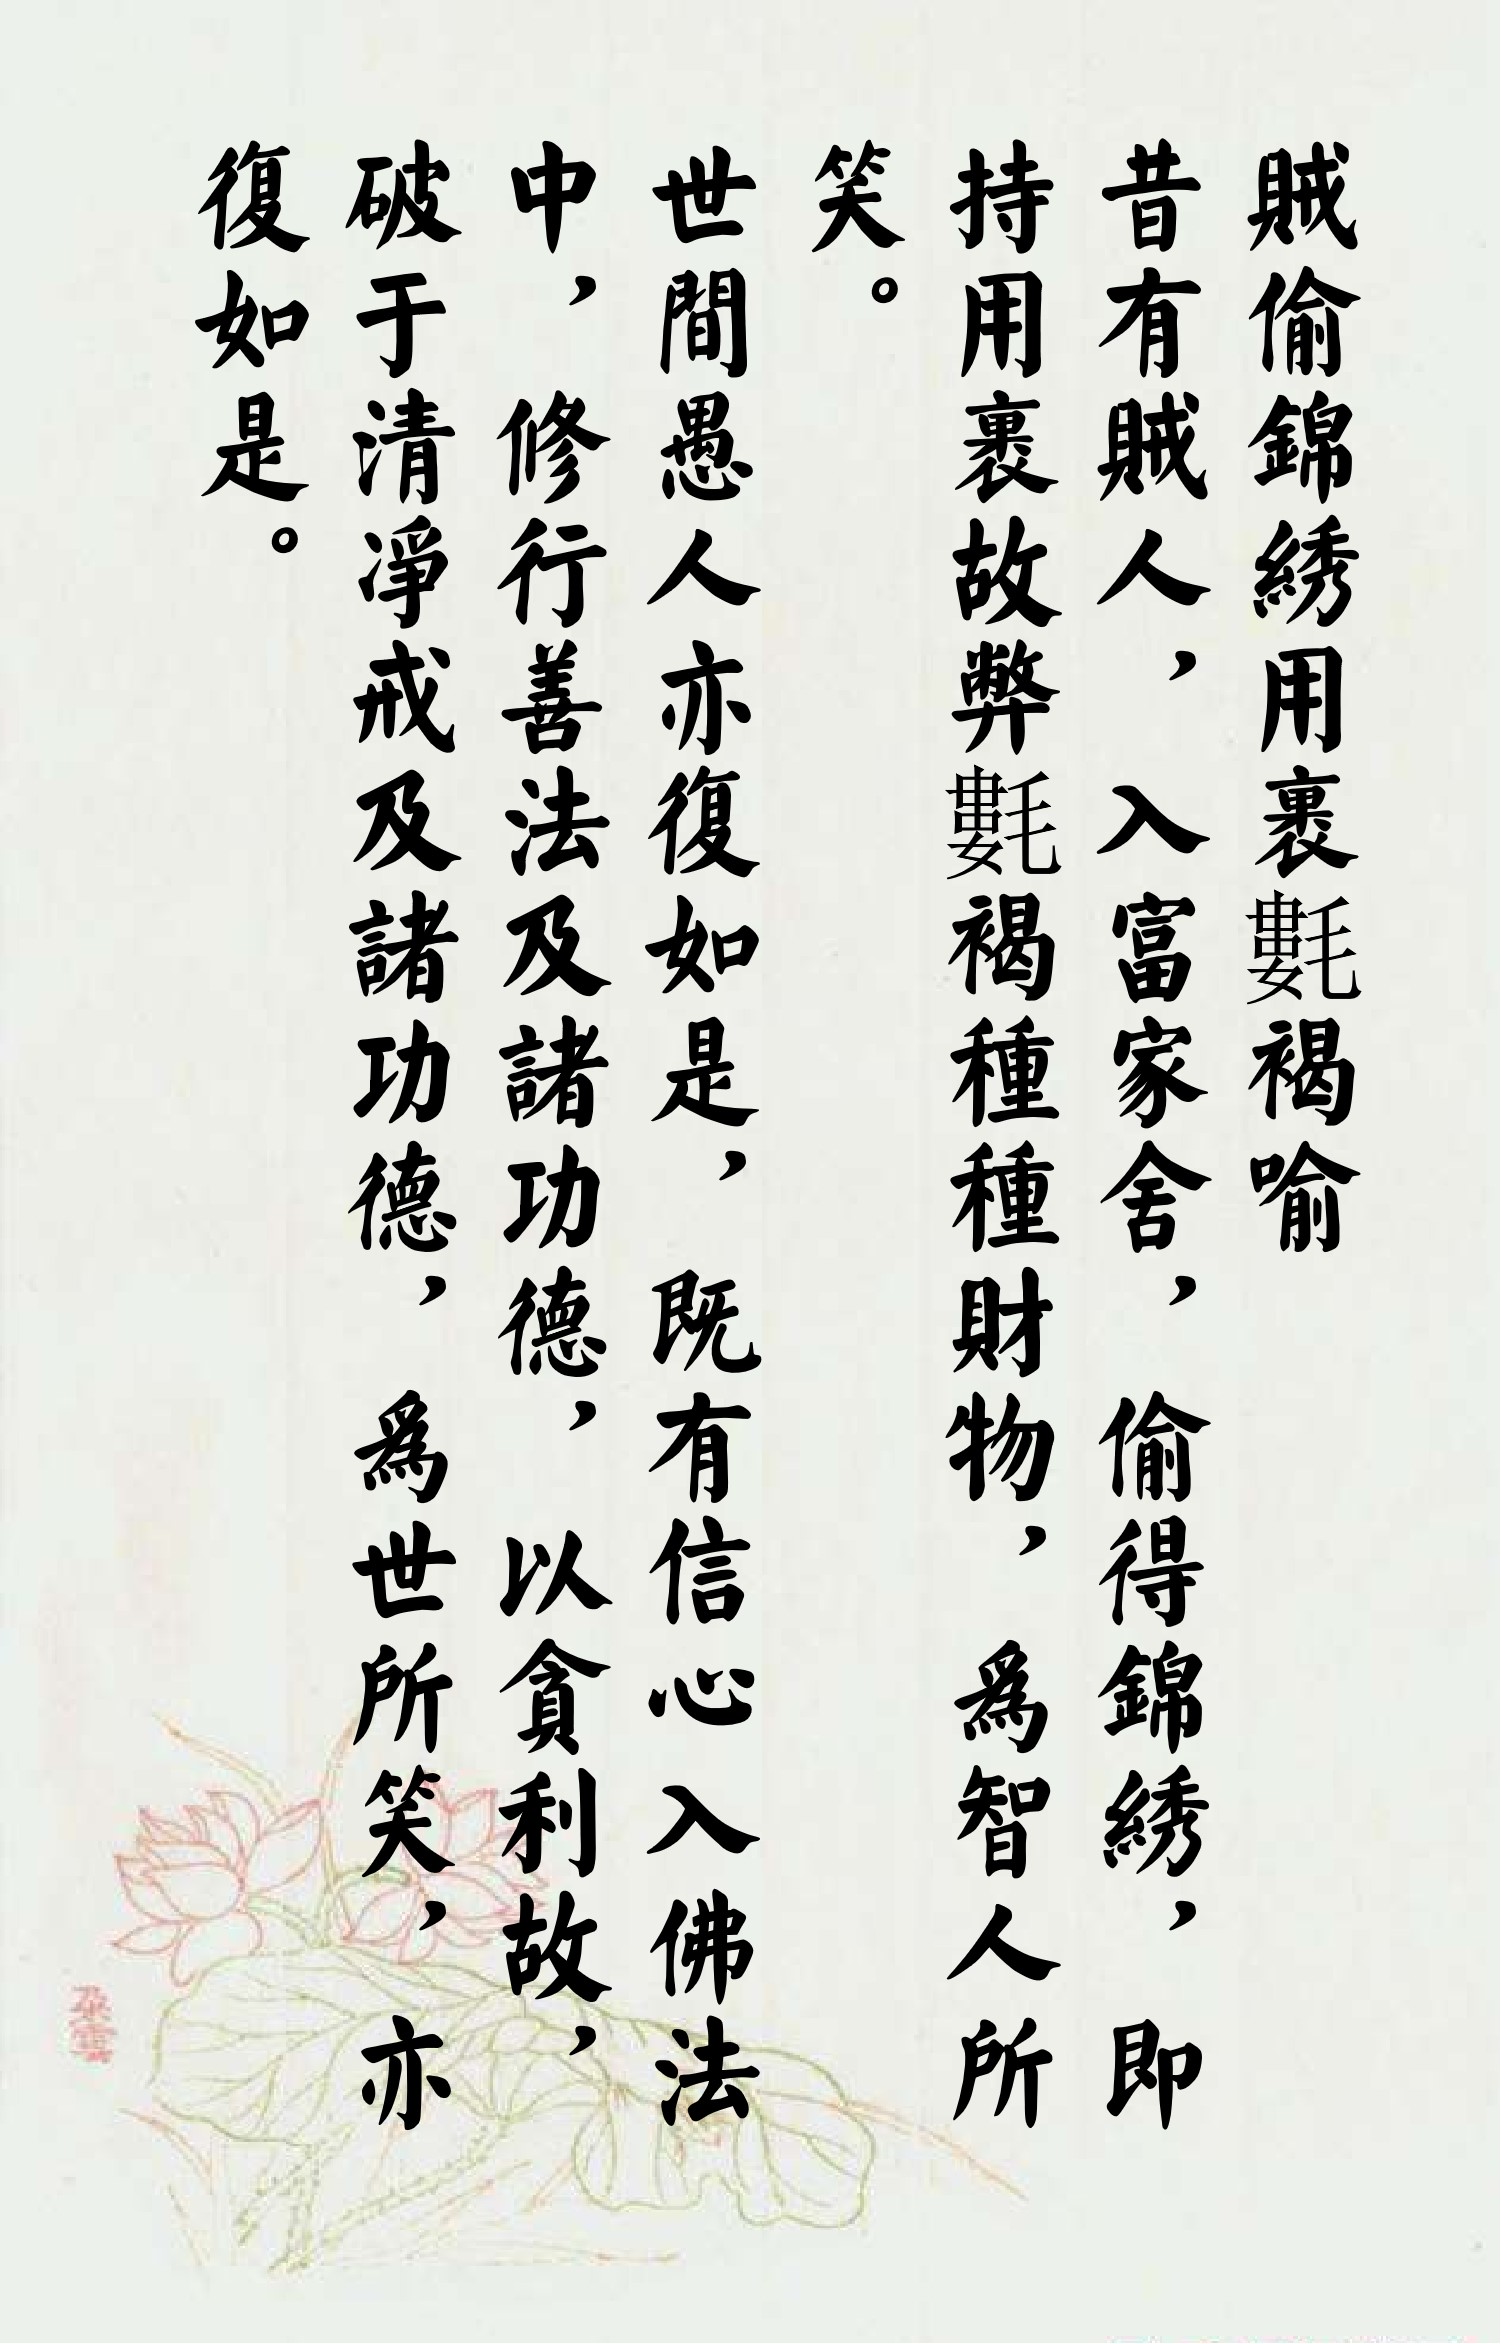 賊偷錦綉用裹氀褐喻
昔有賊人，入富家舍，偷得錦綉，即
持用裹故弊氀褐種種財物，為智人所
笑。
世間愚人亦復如是，既有信心入佛法
中，修行善法及諸功德，以貪利故，
破于清淨戒及諸功德，為世所笑，亦
復如是。
朵雲